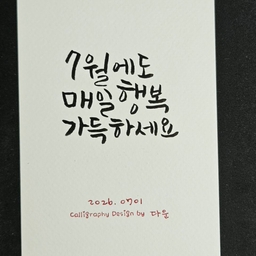 7월에도
매일 행복
가득하세요
2026. 0701
Calligraphy Design by 다운